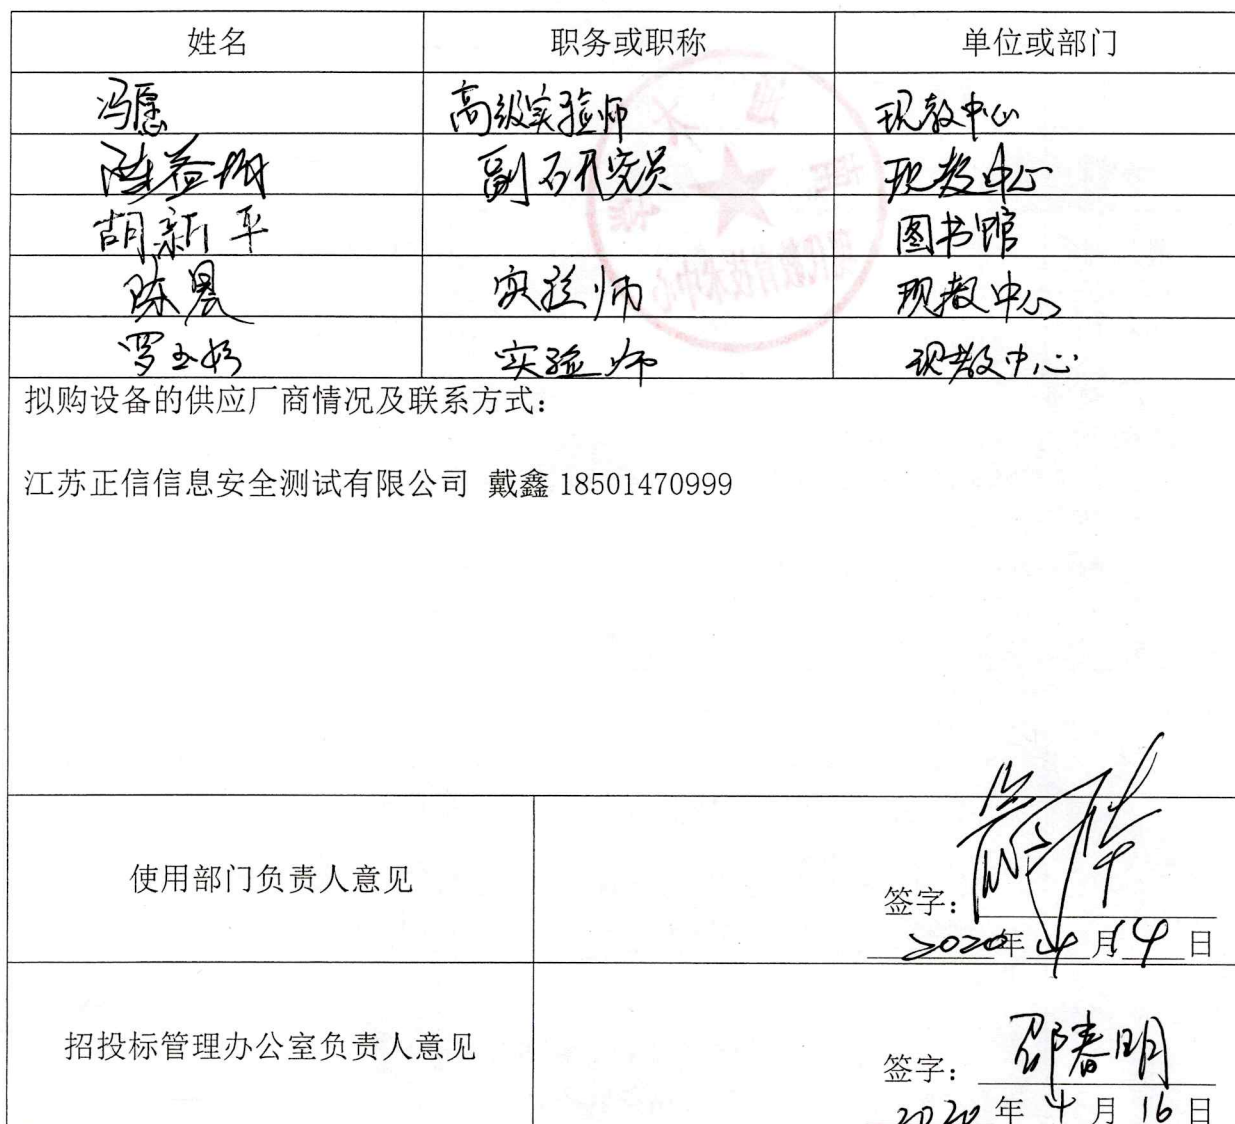 姓名 职务或职称 单位或部门
冯愿 高级实验师 现教中心
陈益 副研究员 现教中心
胡新平 图书馆
陈晨 实验师 现教中心
罗玉 实验师 现教中心
拟购设备的供应厂商情况及联系方式:
江苏正信信息安全测试有限公司 戴鑫 18501470999
使用部门负责人意见
签字:
2020年 4 月 14 日
招投标管理办公室负责人意见
签字: 邵春明
2020 年 4 月 16 日
现代教育技术中心